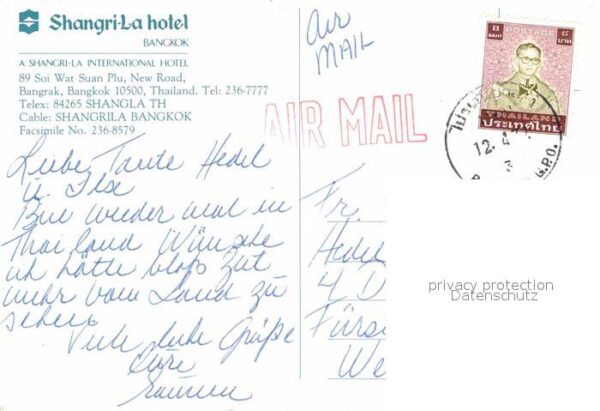 Shangri-La hotel
BANGKOK
A SHANGRI-LA INTERNATIONAL HOTEL
89 Soi Wat Suan Plu, New Road,
Bangrak, Bangkok 10500, Thailand. Tel: 236-7777
Telex: 84265 SHANGLA TH
Cable: SHANGRILA BANGKOK
Facsimile No. 236-8579
Air
MAIL
AIR MAIL
8 BAHT POSTAGE ๘ บาท
THAILAND
ประเทศไทย
12. 4
3
G.P.O.
Liebe Tante Hedel
u. Ilse
Bin wieder mal in
Thailand Wünsche
ich hätte bloß Zeit
mehr vom Land zu
sehen
Viele liebe Grüße
Eure
Fr.
Hedel
4 D
Fürs
We
privacy protection
Datenschutz